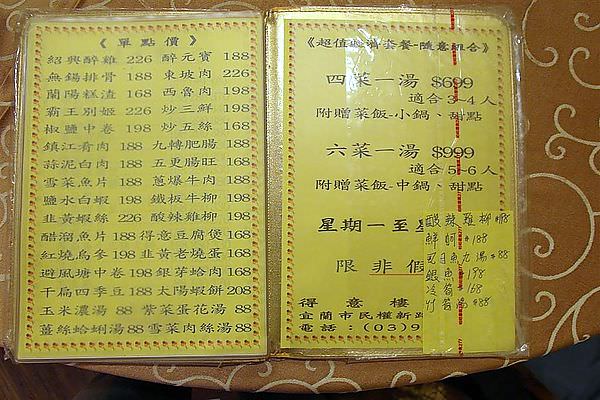 《單點價》
紹興醉雞 226 醉元寶 188
無錫排骨 188 東坡肉 226
蘭陽糕渣 168 西魯肉 198
霸王別姬 226 炒三鮮 198
椒鹽中卷 198 炒五絲 168
鎮江肴肉 188 九轉肥腸 188
蒜泥白肉 188 五更腸旺 188
雪菜魚片 198 蔥爆牛肉 188
鹽水白蝦 198 鐵板牛柳 198
韭黃蝦絲 226 酸辣雞柳 198
醋溜魚片 188 得意豆腐煲 168
紅燒烏參 198 韭黃老燒蛋 168
避風塘中卷 198 銀芽蛤肉 168
干扁四季豆 168 太陽蝦餅 208
玉米濃湯 88 紫菜蛋花湯 88
薑絲蛤蜊湯 88 雪菜肉絲湯 88
《超值經濟套餐-隨意組合》
四菜一湯 $699
適合3-4人
附贈菜飯-小鍋、甜點
六菜一湯 $999
適合5-6人
附贈菜飯-中鍋、甜點
星期一至
限非假
得意樓
宜蘭市民權新路
電話：(03)9
酸辣雞柳
鮮蚵 188
銀魚 198
冷筍 168
竹筍湯 88